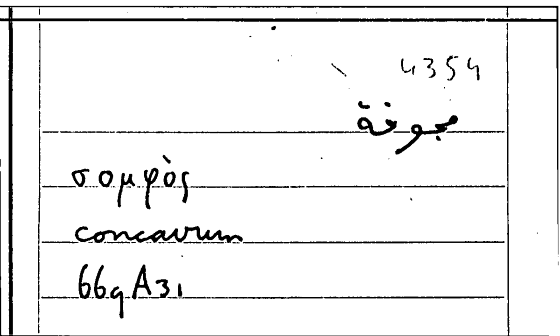 4354
مجوفة
σομφὸς
concavum
669 A31